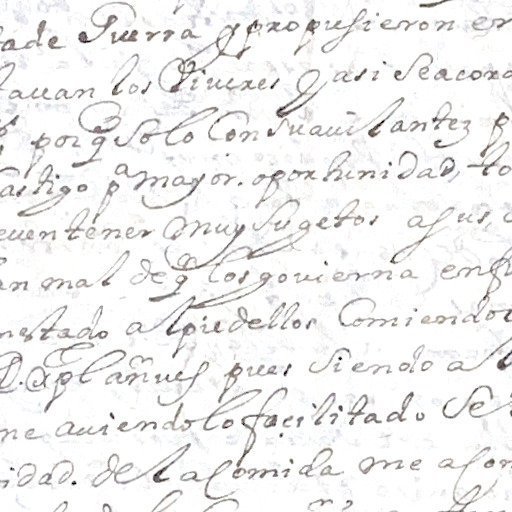 ade Guerra y propusieron en
tavan los Viveres y asi se acord
porq̃ solo Con su avilantez p
Castigo pª mayor. oportunidad, to
even tener muy sugetos a sus,
an mal de q̃ los govierna en su
nestado al pie dellos Comiendo
pues siendo a
me aviendolo façilitado Se
idad. de la Comida me a Con